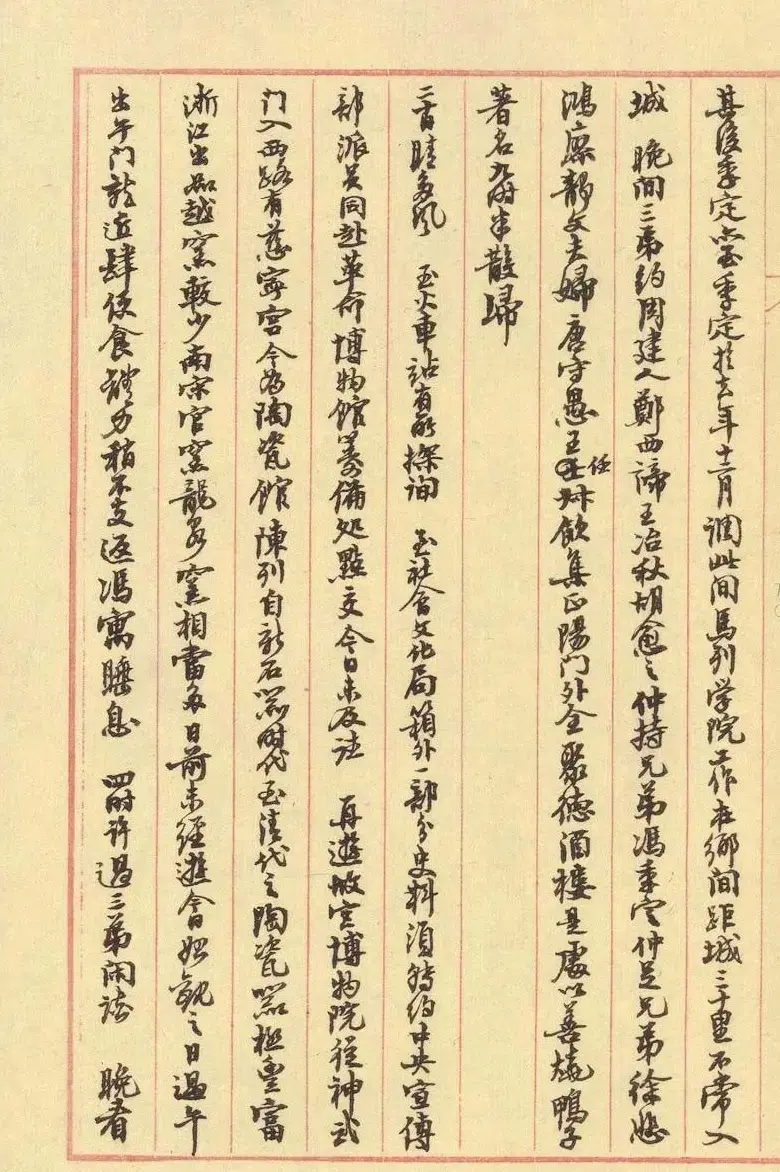 其后季定也至季定於去年十二月調此间馬列学院工作在鄉间距城三十里不常入
城 晚间三弟约周建人鄭西諦王冶秋胡愈之仲持兄弟馮季定仲足兄弟徐
鴻寶韵文夫婦唐守愚王任叔飲集正陽门外全聚德酒樓是處以善燒鴨子
著名九时半散歸
二日晴多风 至火車站有所探询 至社会文化局箱外一部分史料须特约中央宣傳
部派员同赴革命博物馆筹備处點交今日未及註 再遊故宫博物院從神武
门入西路有慈寧宫今为陶瓷館陳列自新石器时代至清代之陶瓷器極豐富
浙江出品越窯較少南宋官窯龍泉窯相當多日前未经遊會始觀之日過午
出午门就近肆便食 稍不支返馮寓睡息 四时许過三弟闲谈 晚看